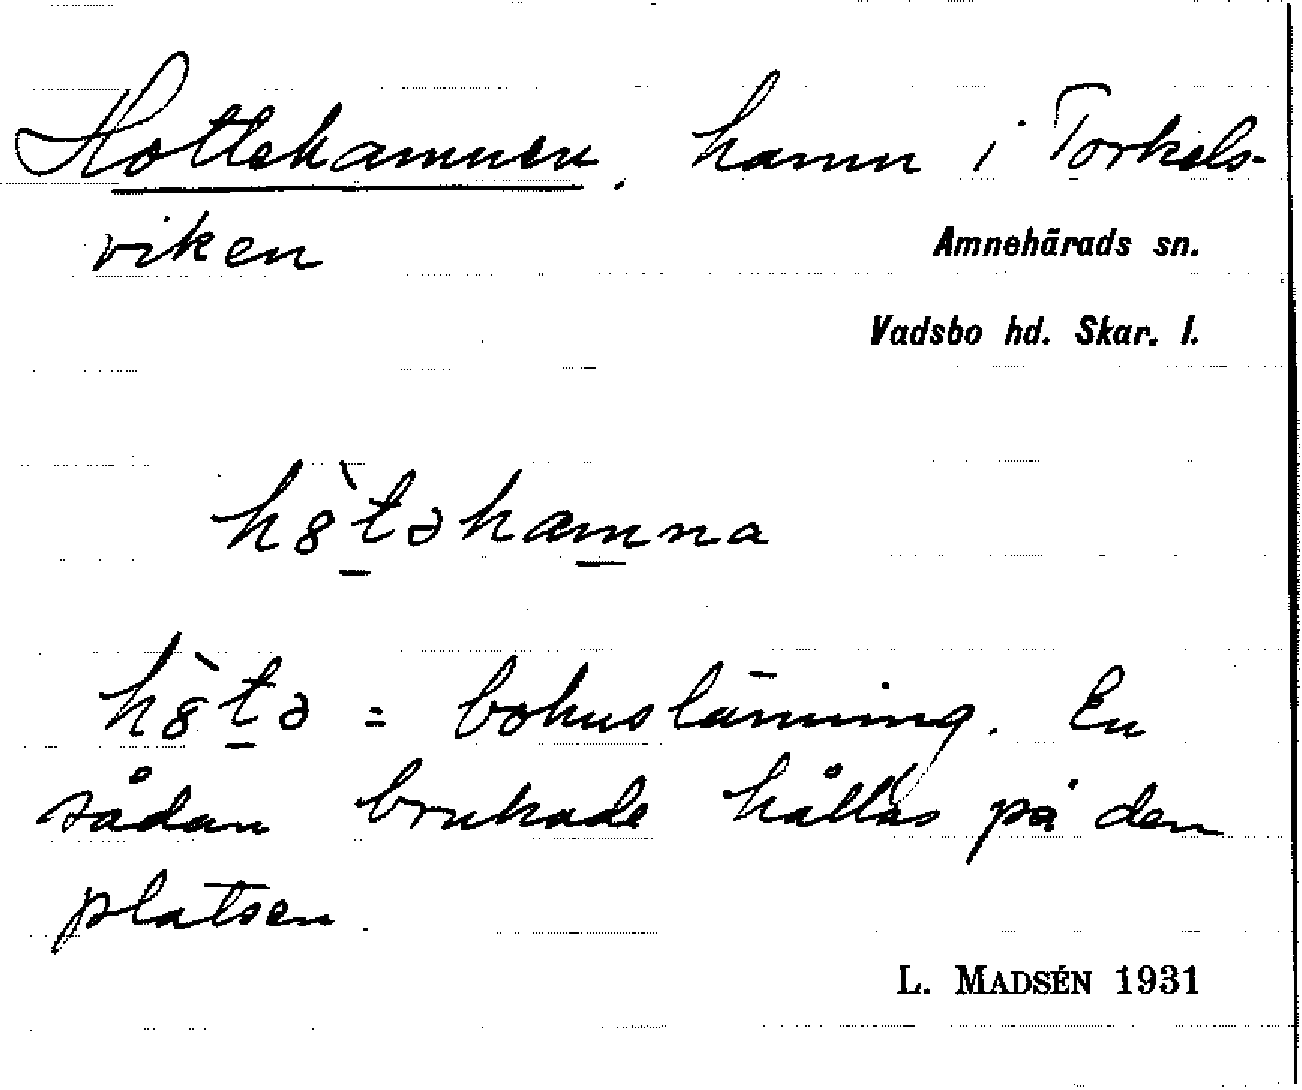 Hottehamnen, hamn i Torkels-
viken
Amnehärads sn.
Vadsbo hd. Skar. l.
h8̀t̠əham̠na
h8̀t̠ə = bohuslänning. En
sådan brukade hållas på den
platsen.
L. MADSÉN 1931